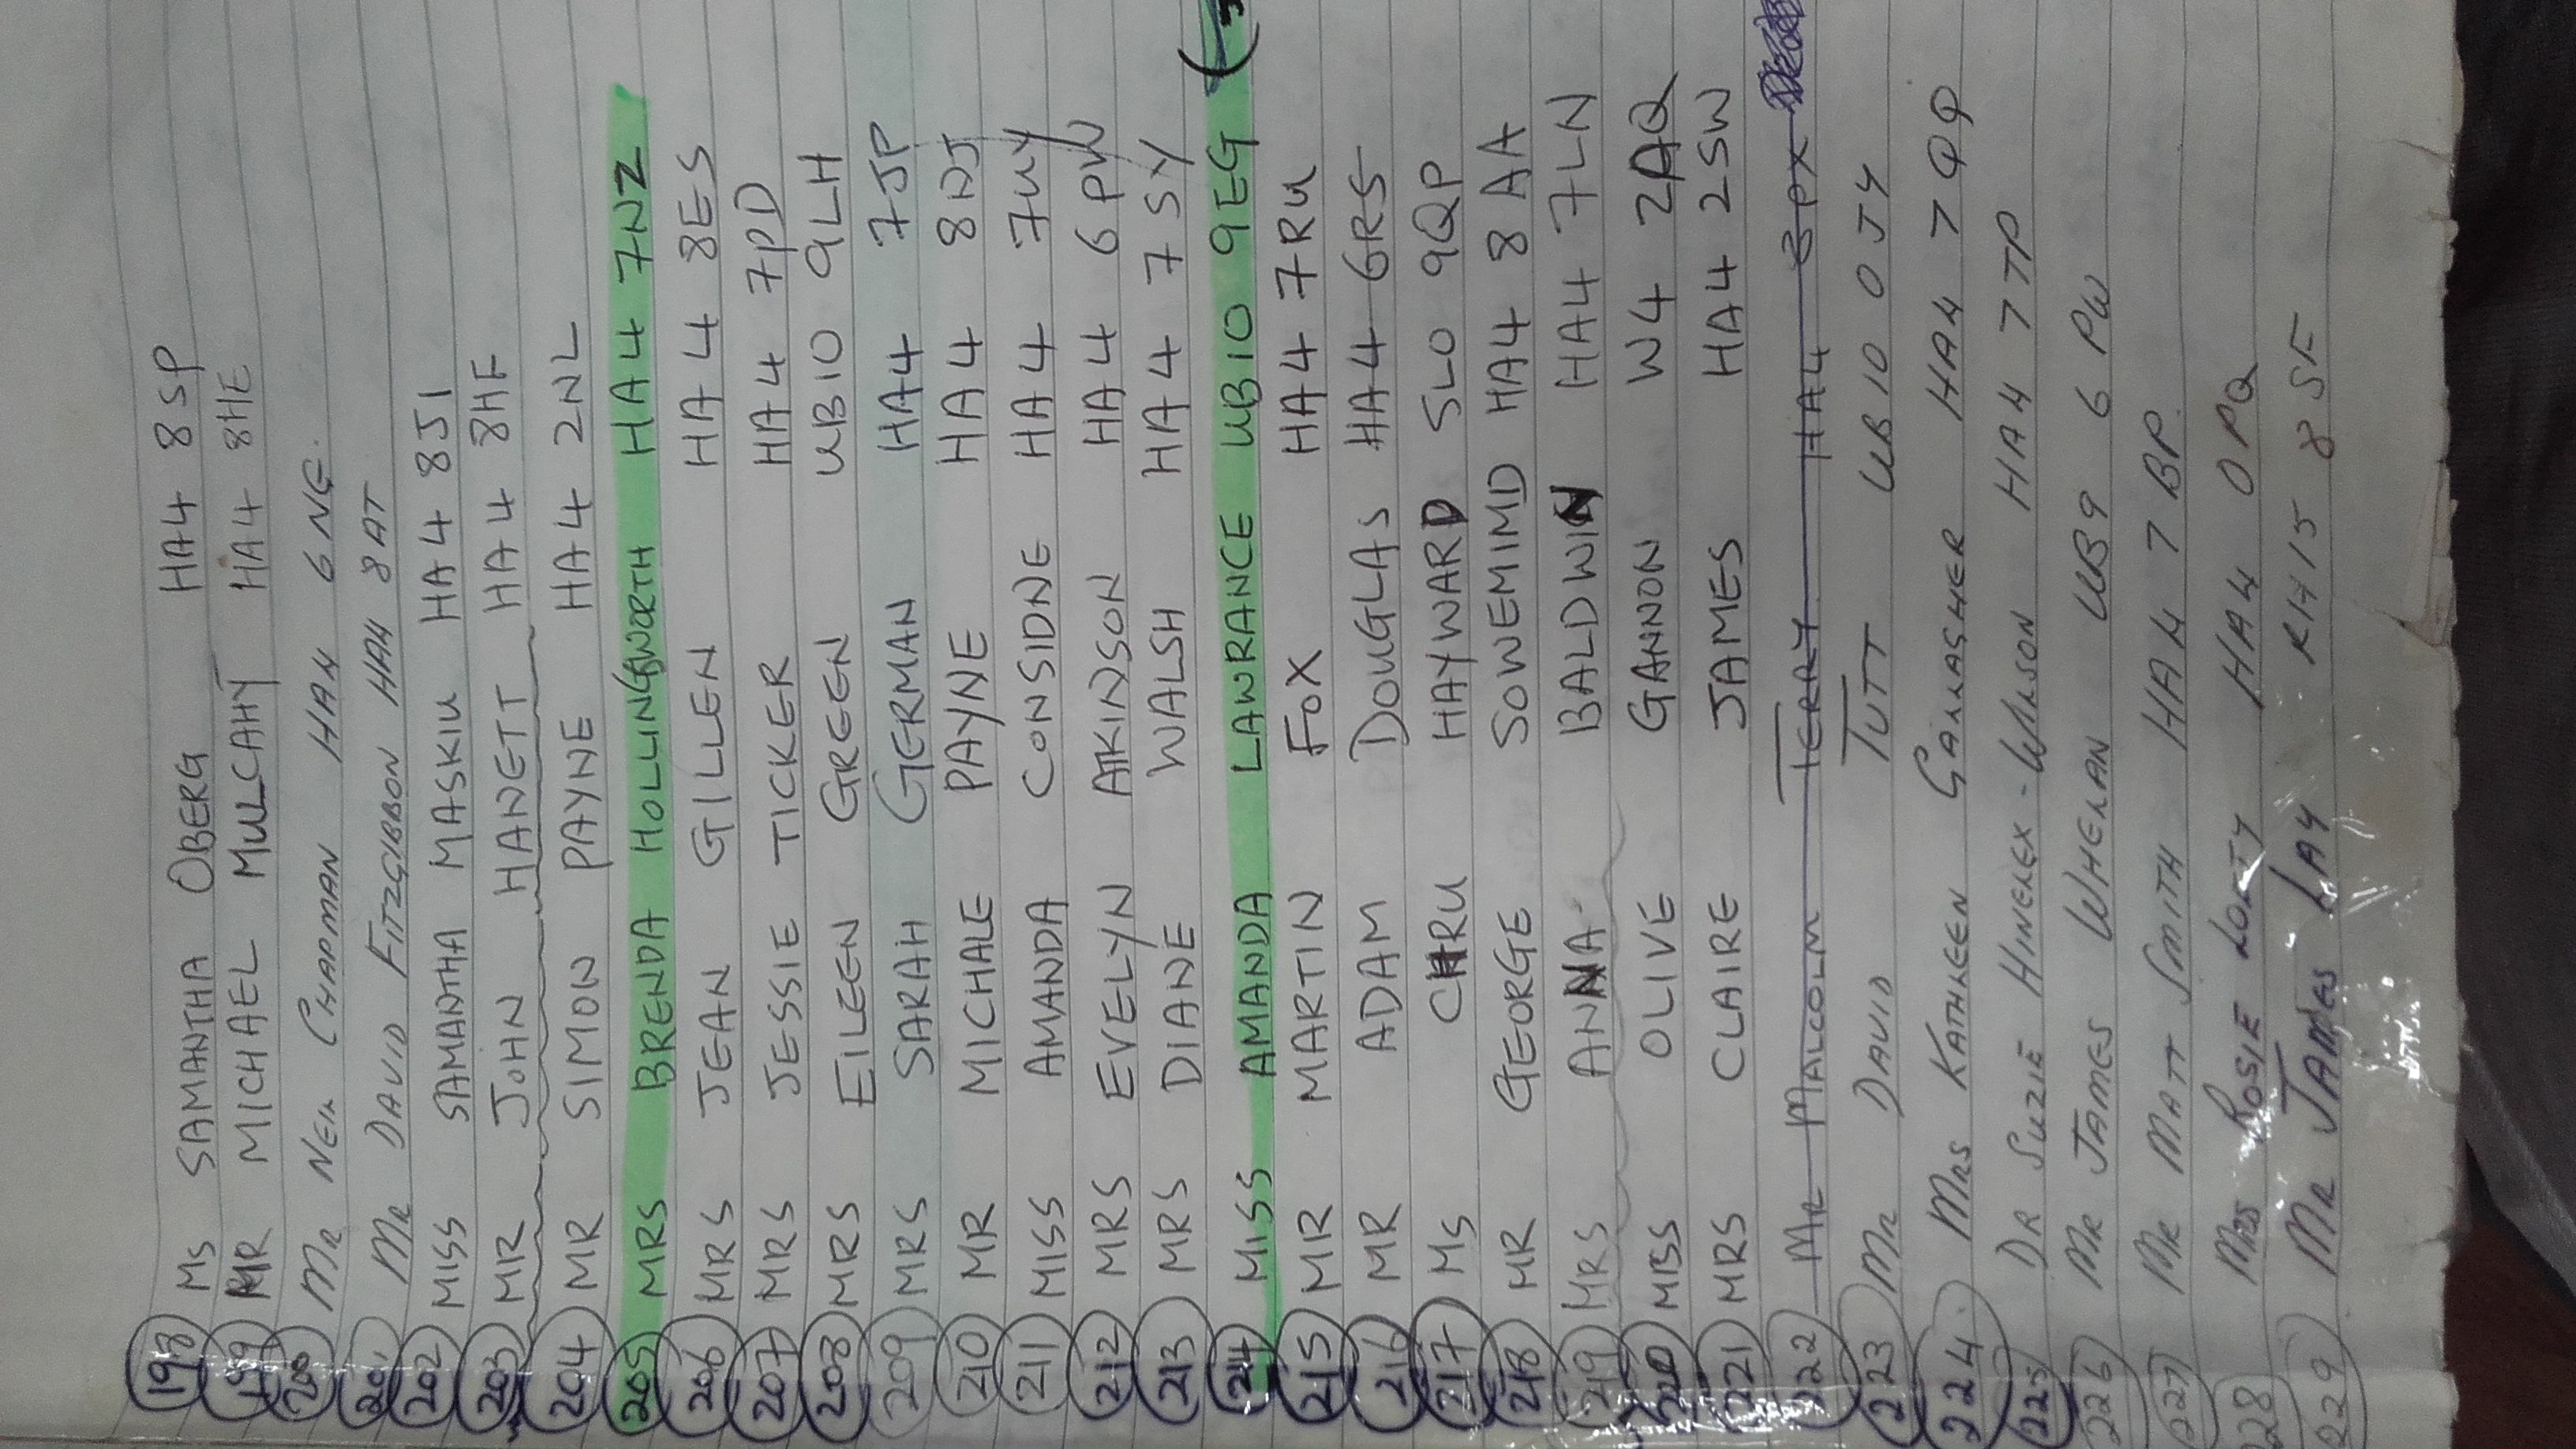 198 Ms SAMANTHA OBERG HA4 8SP
199 MR MICHAEL MULCAHY HA4 8HE
200 MR NEIL CHAPMAN HA4 6NG.
201 MR DAVID FITZGIBBON HA4 8AT
202 MISS SAMANTHA MASKILL HA4 8J1
203 MR JOHN HANETT HA4 8HF
204 MR SIMON PAYNE HA4 2NL
205 MRS BRENDA HOLLINGSWORTH HA4 7NZ
206 MRS JEAN GILLEN HA4 8ES
207 MRS JESSIE TICKER HA4 7PD
208 MRS EILEEN GREEN UB10 9LH
209 MRS SARAH GERMAN HA4 7JP
210 MR MICHALE PAYNE HA4 8NJ
211 MISS AMANDA CONSIDNE HA4 7UY
212 MRS EVELYN ATKINSON HA4 6PW
213 MRS DIANE WALSH HA4 7SY
214 MISS AMANDA LAWRANCE UB10 9EG
215 MR MARTIN FOX HA4 7RU
216 MR ADAM DOUGLAS HA4 6RS
217 Ms CHRU HAYWARD SL0 9QP
218 MR GEORGE SOWEMIMO HA4 8AA
219 MRS ANNA BALDWIN HA4 7LN
220 MISS OLIVE GANNON W4 2AQ
221 MRS CLAIRE JAMES HA4 2SW
222 MR MALCOLM TERRY HA4 8PX
223 MR DAVID TUTT UB10 0JY
224 MRS KATHLEEN GALLAGHER HA4 7QQ
225 DR SUZIE -WILSON HA4 7TP
226 MR JAMES WHELAN UB9 6PW
227 MR MATT SMITH HA4 7BP.
228 MRS ROSIE LOFTY HA4 0PQ
229 MR JAMES LAY RH15 8SF